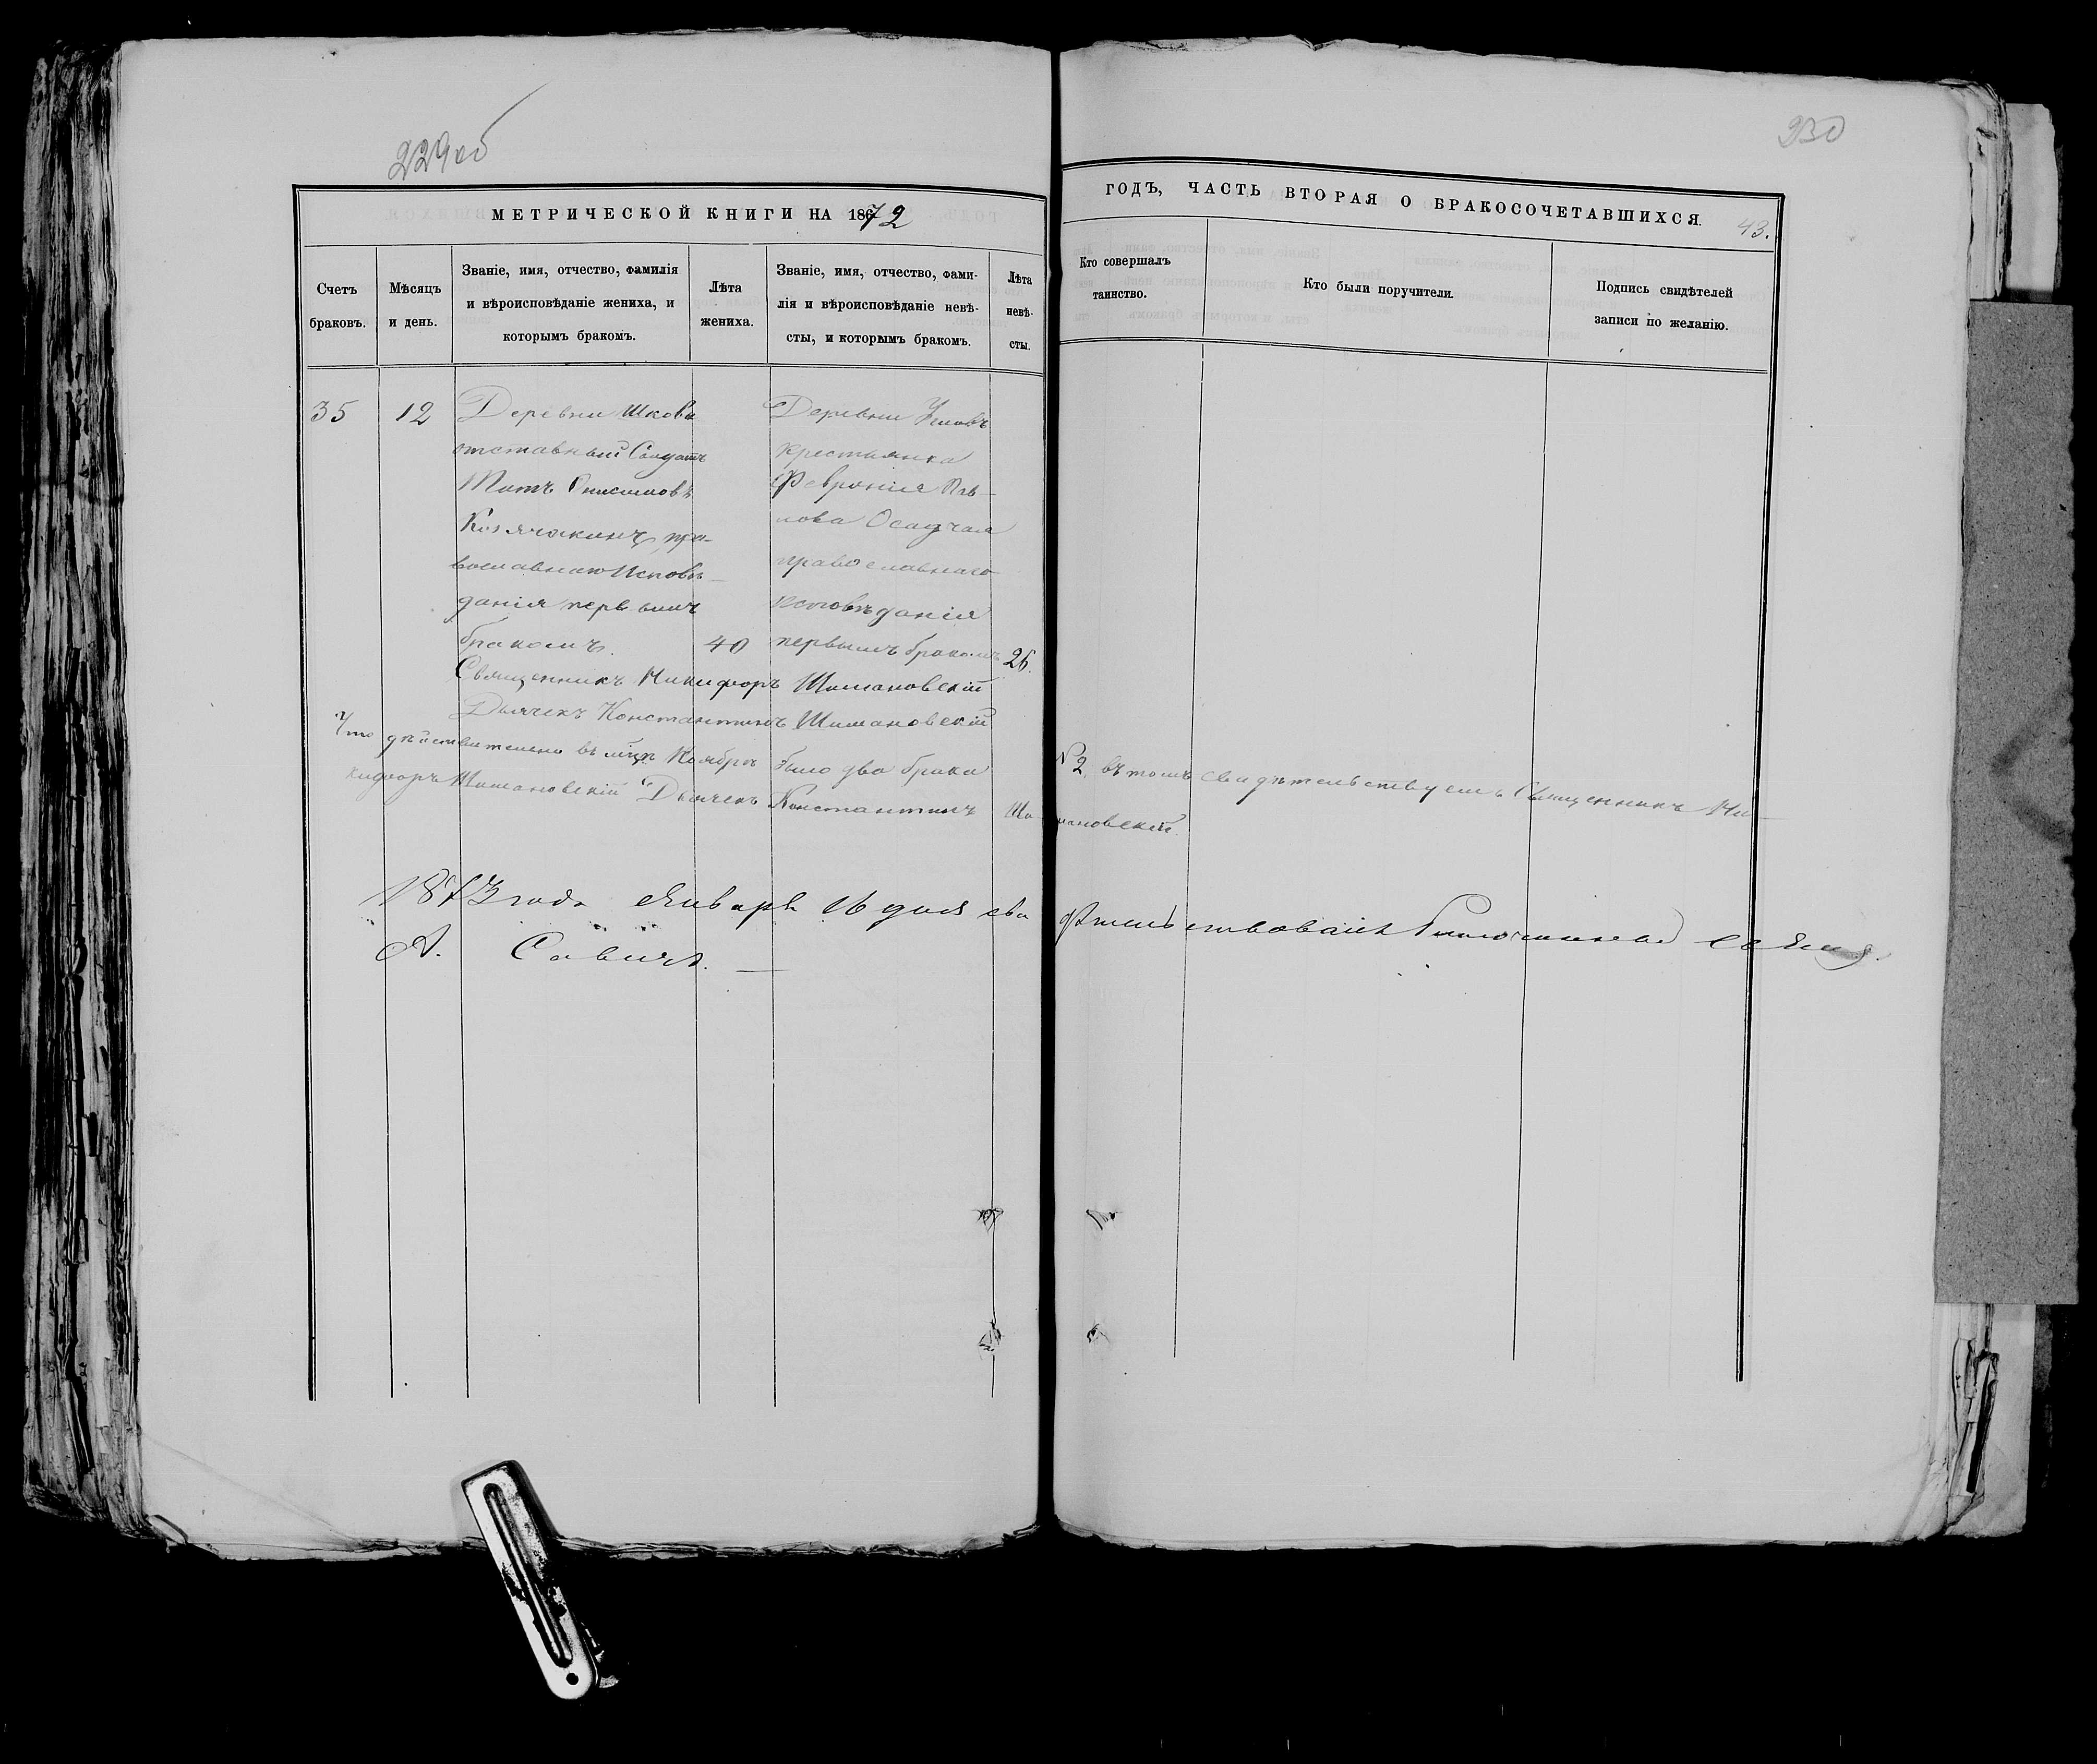 229об
230
МЕТРИЧЕСКОЙ КНИГИ НА 1872
ГОДЪ, ЧАСТЬ ВТОРАЯ О БРАКОСОЧЕТАВШИХСЯ.
43.
Счетъ
браковъ.
Мѣсяцъ
и день.
Званіе, имя, отчество, фамилія
и вѣроисповѣданіе жениха, и
которымъ бракомъ.
Лѣта
жениха.
Званіе, имя, отчество, фами-
лія и вѣроисповѣданіе невѣ-
сты, и которымъ бракомъ.
Лѣта
невѣ-
сты.
Кто совершалъ
таинство.
Кто были поручители.
Подпись свидѣтелей
записи по желанію.
35
12
Деревни
отставный Солдатъ
Титъ Онисимовъ
пра-
вославнаго Исповѣ-
данія первымъ
бракомъ.
40
Деревни
крестьянка
Февронія Пав-
лова Осадчая
православнаго
исповѣданія
первымъ бракомъ
26.
Священникъ Никифоръ Шимановскій
Дьячекъ Константинъ Шимановскій
Что дѣйствительно въ мѣсяцѣ Ноябрѣ было два брака № 2 въ томъ свидѣтельствуемъ Священникъ Ни-
кифоръ Шимановскій Дьячекъ Константинъ Шимановскій.
1873 года Января 16 дня свидѣтельствовалъ
А. Савичъ.